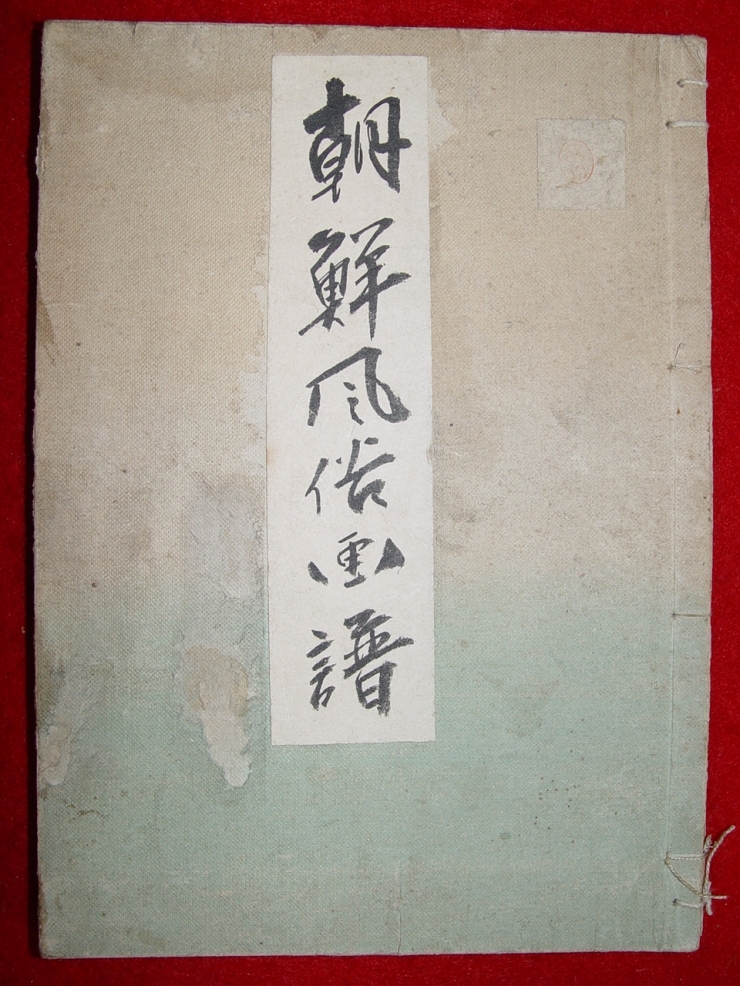 朝鮮風俗画譜